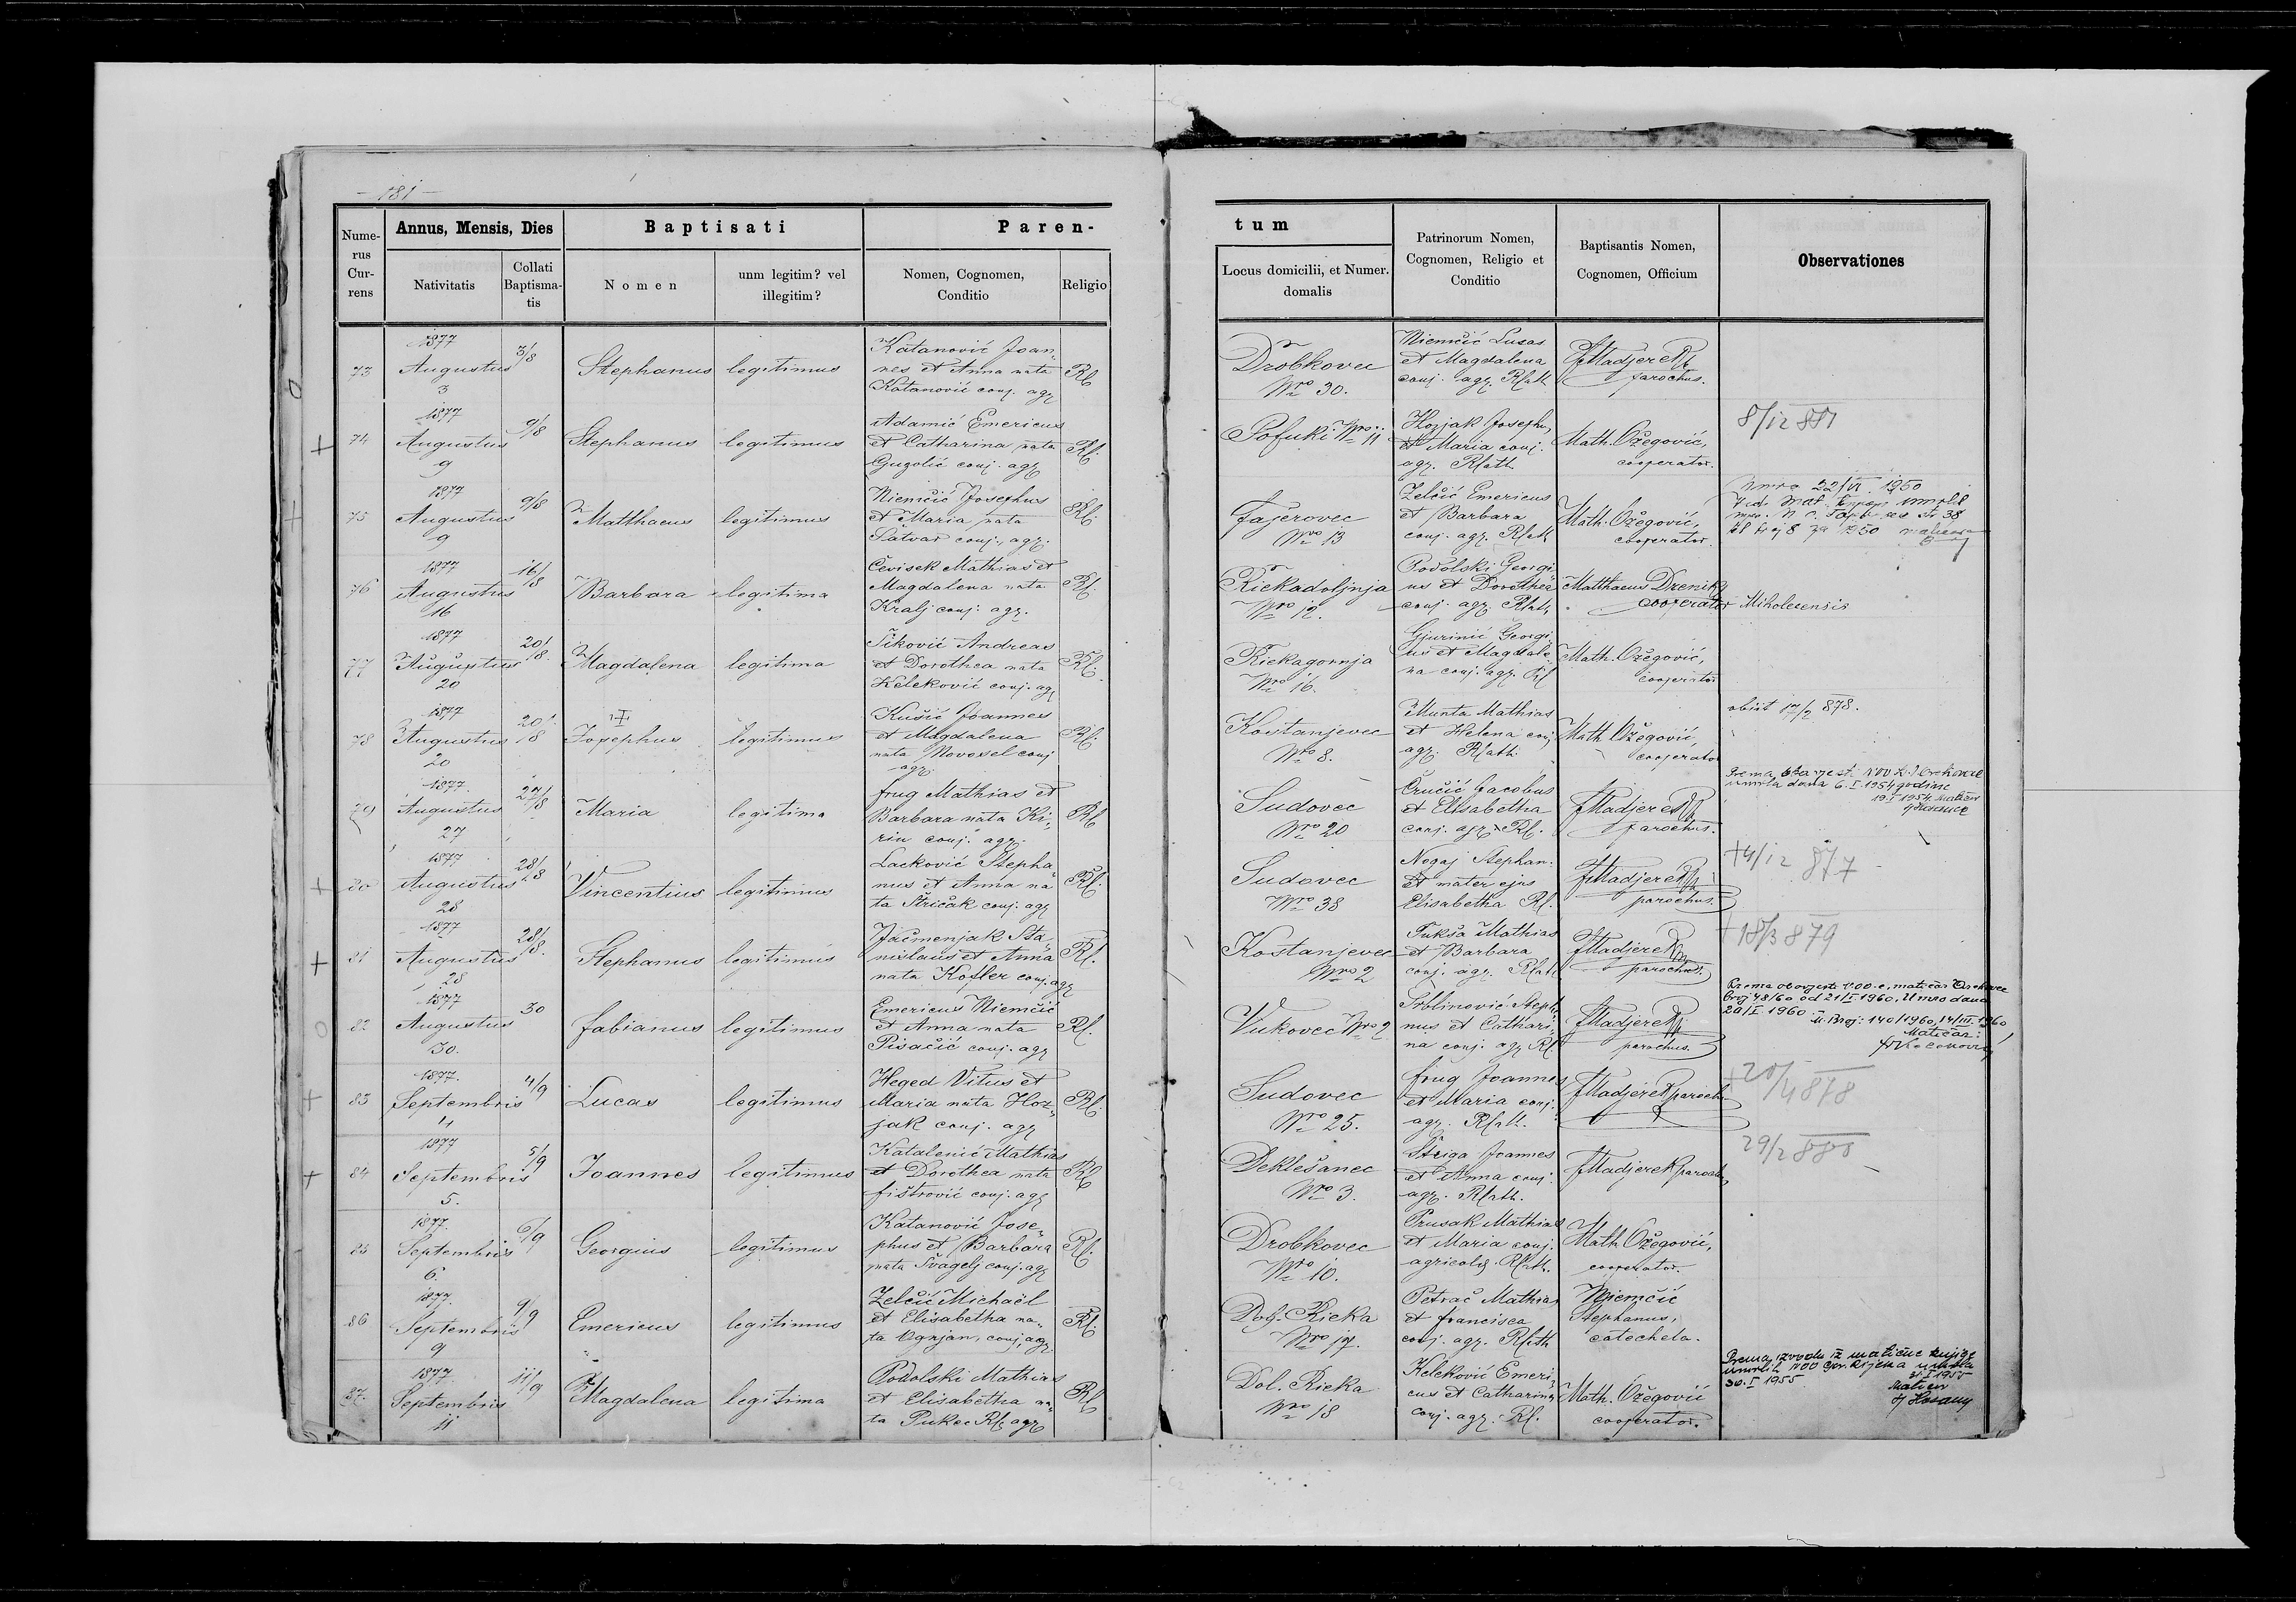 — 181 —
Nume-
rus
Cur-
rens
Annus, Mensis, Dies
Nativitatis
Collati
Baptisma-
tis
Baptisati
Nomen
unm legitim? vel
illegitim?
Paren-
Nomen, Cognomen,
Conditio
Religio
tum
Locus domicilii, et Numer.
domalis
Patrinorum Nomen,
Cognomen, Religio et
Conditio
Baptisantis Nomen,
Cognomen, Officium
Observationes
73
1877
Augustus
3
3/8
Stephanus
legitimus
Katanović Joan„
nes et Anna nata
Katanović conj. agr
Rl
Drobkovec
Nro 30.
Niemčić Lucas
et Magdalena
conj. agr. Rlath
FMadjerek
parochus.
74
1877
Augustus
9
9/8
Stephanus
legitimus
Adamić Emericus
et Catharina nata
Guzolić conj. agr
Rl.
Pofuki Nro 11
Hozjak Josephus,
et Maria conj.
agr. Rlath
Math. Ožegović,
cooperator.
8/12 881
75
1877
Augustus
9
9/8
Matthaeus
legitimus
Niemčić Josephus
et Maria nata
Šatvar conj., agr.
Rl.
Fajerovec
Nro 13
Zelčić Emericus
et Barbara
conj. agr. Rlath
Math. Ožegović,
cooperator.
Umro 22/VI. 1950
76
1877
Augustus
16
16/8
Barbara
legitima
Čevisek Mathias et
Magdalena nata
Kralj conj. agr.
Rl.
Riekadoljnja
Nro 12.
Podolski Georgi„
us et Dorothea
conj. agr. Rlath
Matthaeus Drenik,
cooperator Miholecensis
77
1877
Augustus
20
20/8.
Magdalena
legitima
Šiković Andreas
et Dorothea nata
Keleković conj. agr
Rl.
Riekagornja
Nro 16.
Gjurinić Georgi„
us et Magdale„
na conj. agr. Rl
Math. Ožegović,
cooperator
78
1877
Augustus
20
20/8
Josephus
legitimus
Kušić Joannes
et Magdalena
nata Novosel conj
agr.
Rl.
Kostanjevec
Nro 8.
Munta Mathias
et Helena conj
agr. Rlath.
Math Ožegović,
cooperator
obiit 17/2 878.
79
1877.
Augustus
27
27/8
Maria
legitima
Frug Mathias et
Barbara nata Ki„
rin conj. agr.
Rl
Sudovec
Nro 20
Čručić Jacobus
et Elisabetha
conj. agr. Rl.
FMadjerek
parochus.
umrla dana 6.I.1954 godine
19.I.1954. Matičar
80
1877
Augustus
28
28/8
Vincentius
legitimus
Lacković Stepha„
nus et Anna na
ta Štričak conj. agr
Rl.
Sudovec
Nro 38
Nogaj Stephan.
et mater ejus
Elisabetha Rl.
FMadjerek
parochus.
+4/12 877
81
1877
Augustus
28
28/8.
Stephanus
legitimus
Jačmenjak Sta„
nislaus et Anna
nata Kofler conj. agr
Rl.
Kostanjevec
Nro 2
Fukša Mathias
et Barbara
conj. agr. Rlath
FMadjerek
parochus.
+18/3 879
82
1877
Augustus
30.
30
Fabianus
legitimus
Emericus Niemčić
et Anna nata
Pisačić conj. agr
Rl.
Vukovec Nro 2
nus et Cathari„
na conj. agr Rl.
FMadjerek
parochus.
broj 48/60 od 21/I 1960. Umro dana
20/I 1960.
M. Broj: 140/1960, 14/III 1960
Matičar:
83
1877.
Septembris
4
4/9
Lucas
legitimus
Heged Vitus et
Maria nata Hoz„
jak conj. agr
Rl.
Sudovec
Nro 25.
Frug Joannes
et Maria conj.
agr. Rlath.
FMadjerek paroch.
+20/4 878
84
1877
Septembris
5.
5/9
Joannes
legitimus
Katalenić Mathias
et Dorothea nata
Fištrović conj. agr
Rl
Deklešanec
Nro 3.
Štriga Joannes
et Anna conj.
agr. Rlath.
FMadjerek paroch.
29/2 880
85
1877.
Septembris
6.
6/9
Georgius
legitimus
Katanović Jose„
phus et Barbara
nata Švagelj conj. agr
Rl.
Drobkovec
Nro 10.
Prusak Mathias
et Maria conj.
agricolæ. Rlath.
Math Ožegović,
cooperator.
86
1877.
Septembris
9
9/9
Emericus
legitimus
Zelčić Michaël
et Elisabetha na„
ta Ognjan, conj, agr.
Rl.
Dolj. Rieka
Nro 17.
Petrač Mathias
et Francisca
conj. agr. Rlath
Njemčić
Stephanus,
catecheta.
87.
1877.
Septembris
11
11/9
Magdalena
legitima
Podolski Mathias
et Elisabetha na„
ta Pukec Rl. agr
Rl
Dol. Rieka
Nro 18
Keleković Emeri„
cus et Catharina
conj. agr. Rl.
Math. Ožegović
cooperator.
Prema izvodu iz matične knjige
umrlih NOO Gor. Rijeka umrla
30.I 1955.
31 I 1955
Matičar